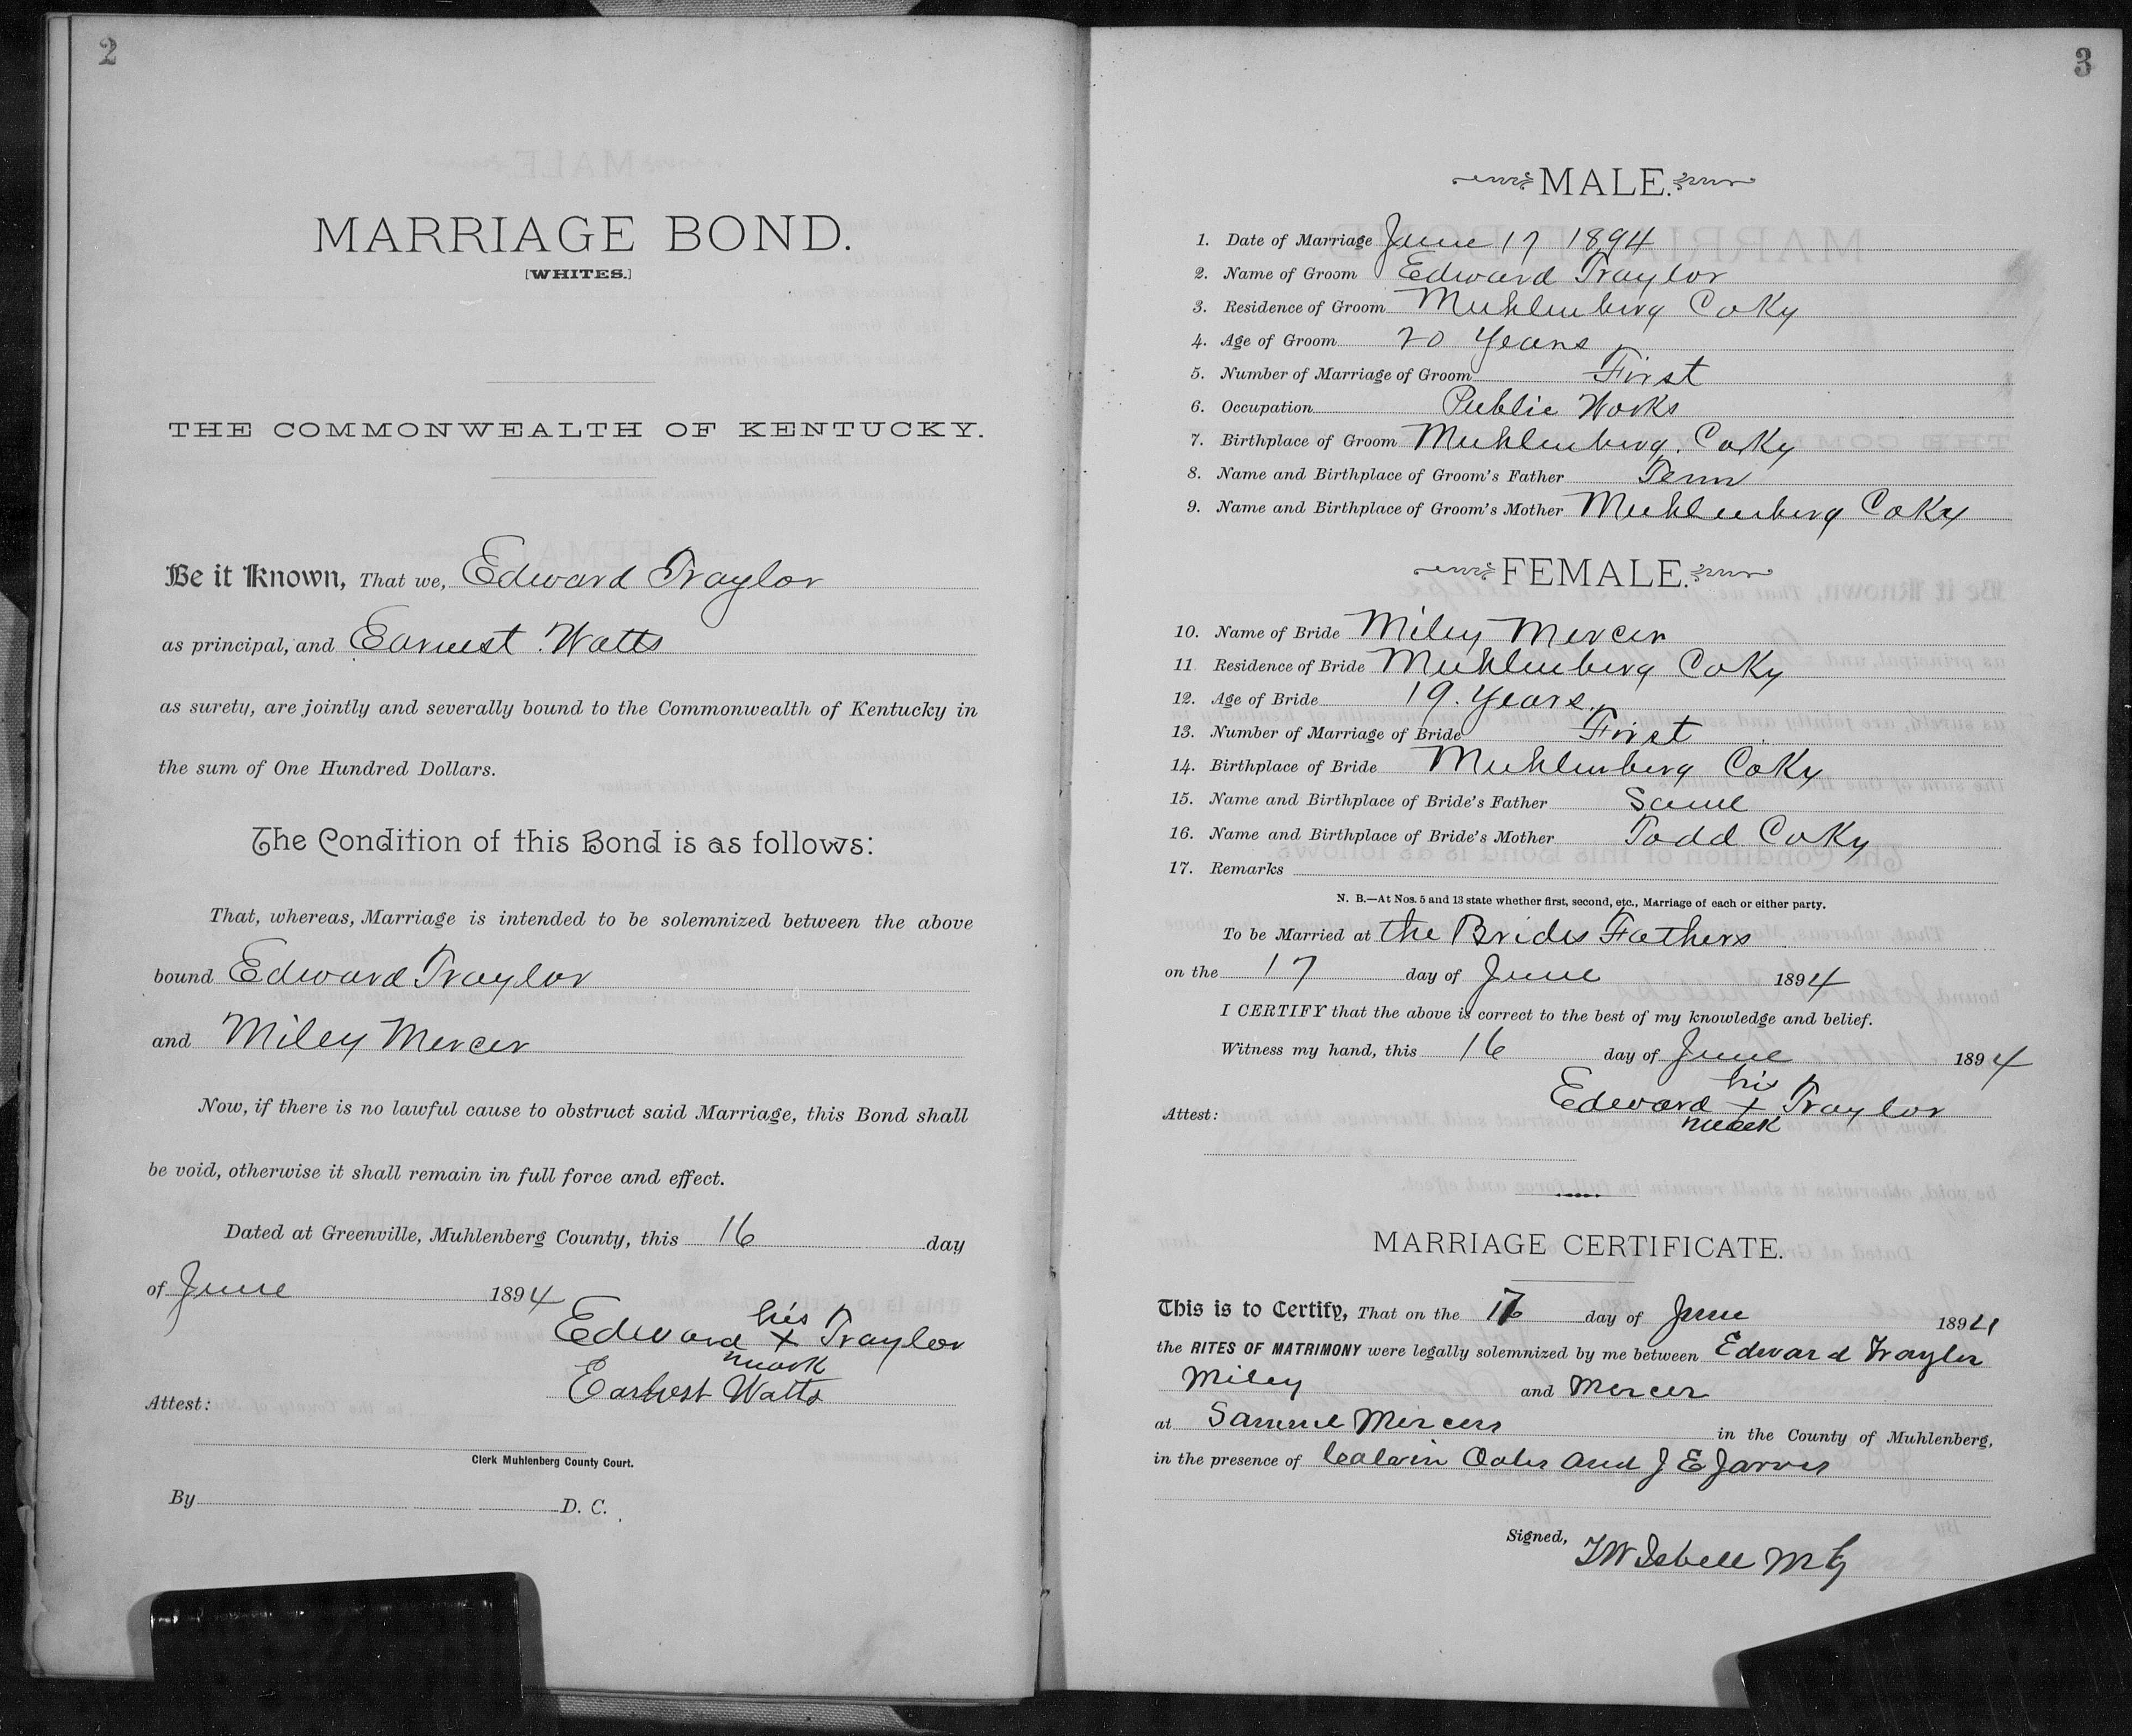 2
MARRIAGE BOND.
[WHITES.]
THE COMMONWEALTH OF KENTUCKY.
Be it Known, That we, Edward Traylor
as principal, and Earnest Watts
as surety, are jointly and severally bound to the Commonwealth of Kentucky in
the sum of One Hundred Dollars.
The Condition of this Bond is as follows:
That, whereas, Marriage is intended to be solemnized between the above
bound Edward Traylor
and Miley Mercer
Now, if there is no lawful cause to obstruct said Marriage, this Bond shall
be void, otherwise it shall remain in full force and effect.
Dated at Greenville, Muhlenberg County, this 16 day
of June 1894
his
Edward x Traylor
mark
Earnest Watts
Attest:
Clerk Muhlenberg County Court.
By D. C.
3
MALE.
1. Date of Marriage June 17 1894
2. Name of Groom Edward Traylor
3. Residence of Groom Muhlenberg Co Ky
4. Age of Groom 20 Years
5. Number of Marriage of Groom First
6. Occupation Public Works
7. Birthplace of Groom Muhlenberg. Co Ky
8. Name and Birthplace of Groom's Father Tenn
9. Name and Birthplace of Groom's Mother Muhlenberg Co Ky
FEMALE.
10. Name of Bride Miley Mercer
11 Residence of Bride Muhlenberg Co Ky
12. Age of Bride 19. Years.
13. Number of Marriage of Bride First
14. Birthplace of Bride Muhlenberg Co Ky
15. Name and Birthplace of Bride's Father Same
16. Name and Birthplace of Bride's Mother Todd Co Ky
17. Remarks
N. B.—At Nos. 5 and 13 state whether first, second, etc., Marriage of each or either party.
To be Married at the Brides Fathers
on the 17 day of June 1894
I CERTIFY that the above is correct to the best of my knowledge and belief.
Witness my hand, this 16 day of June 1894
his
Edward x Traylor
mark
Attest:
MARRIAGE CERTIFICATE.
This is to Certify, That on the 17 day of June 1894
the RITES OF MATRIMONY were legally solemnized by me between Edward Traylor
Miley and Mercer
at Sammie Mercers in the County of Muhlenberg,
in the presence of Calvin Oates and J E Jarvis
Signed, J W Isbell M G